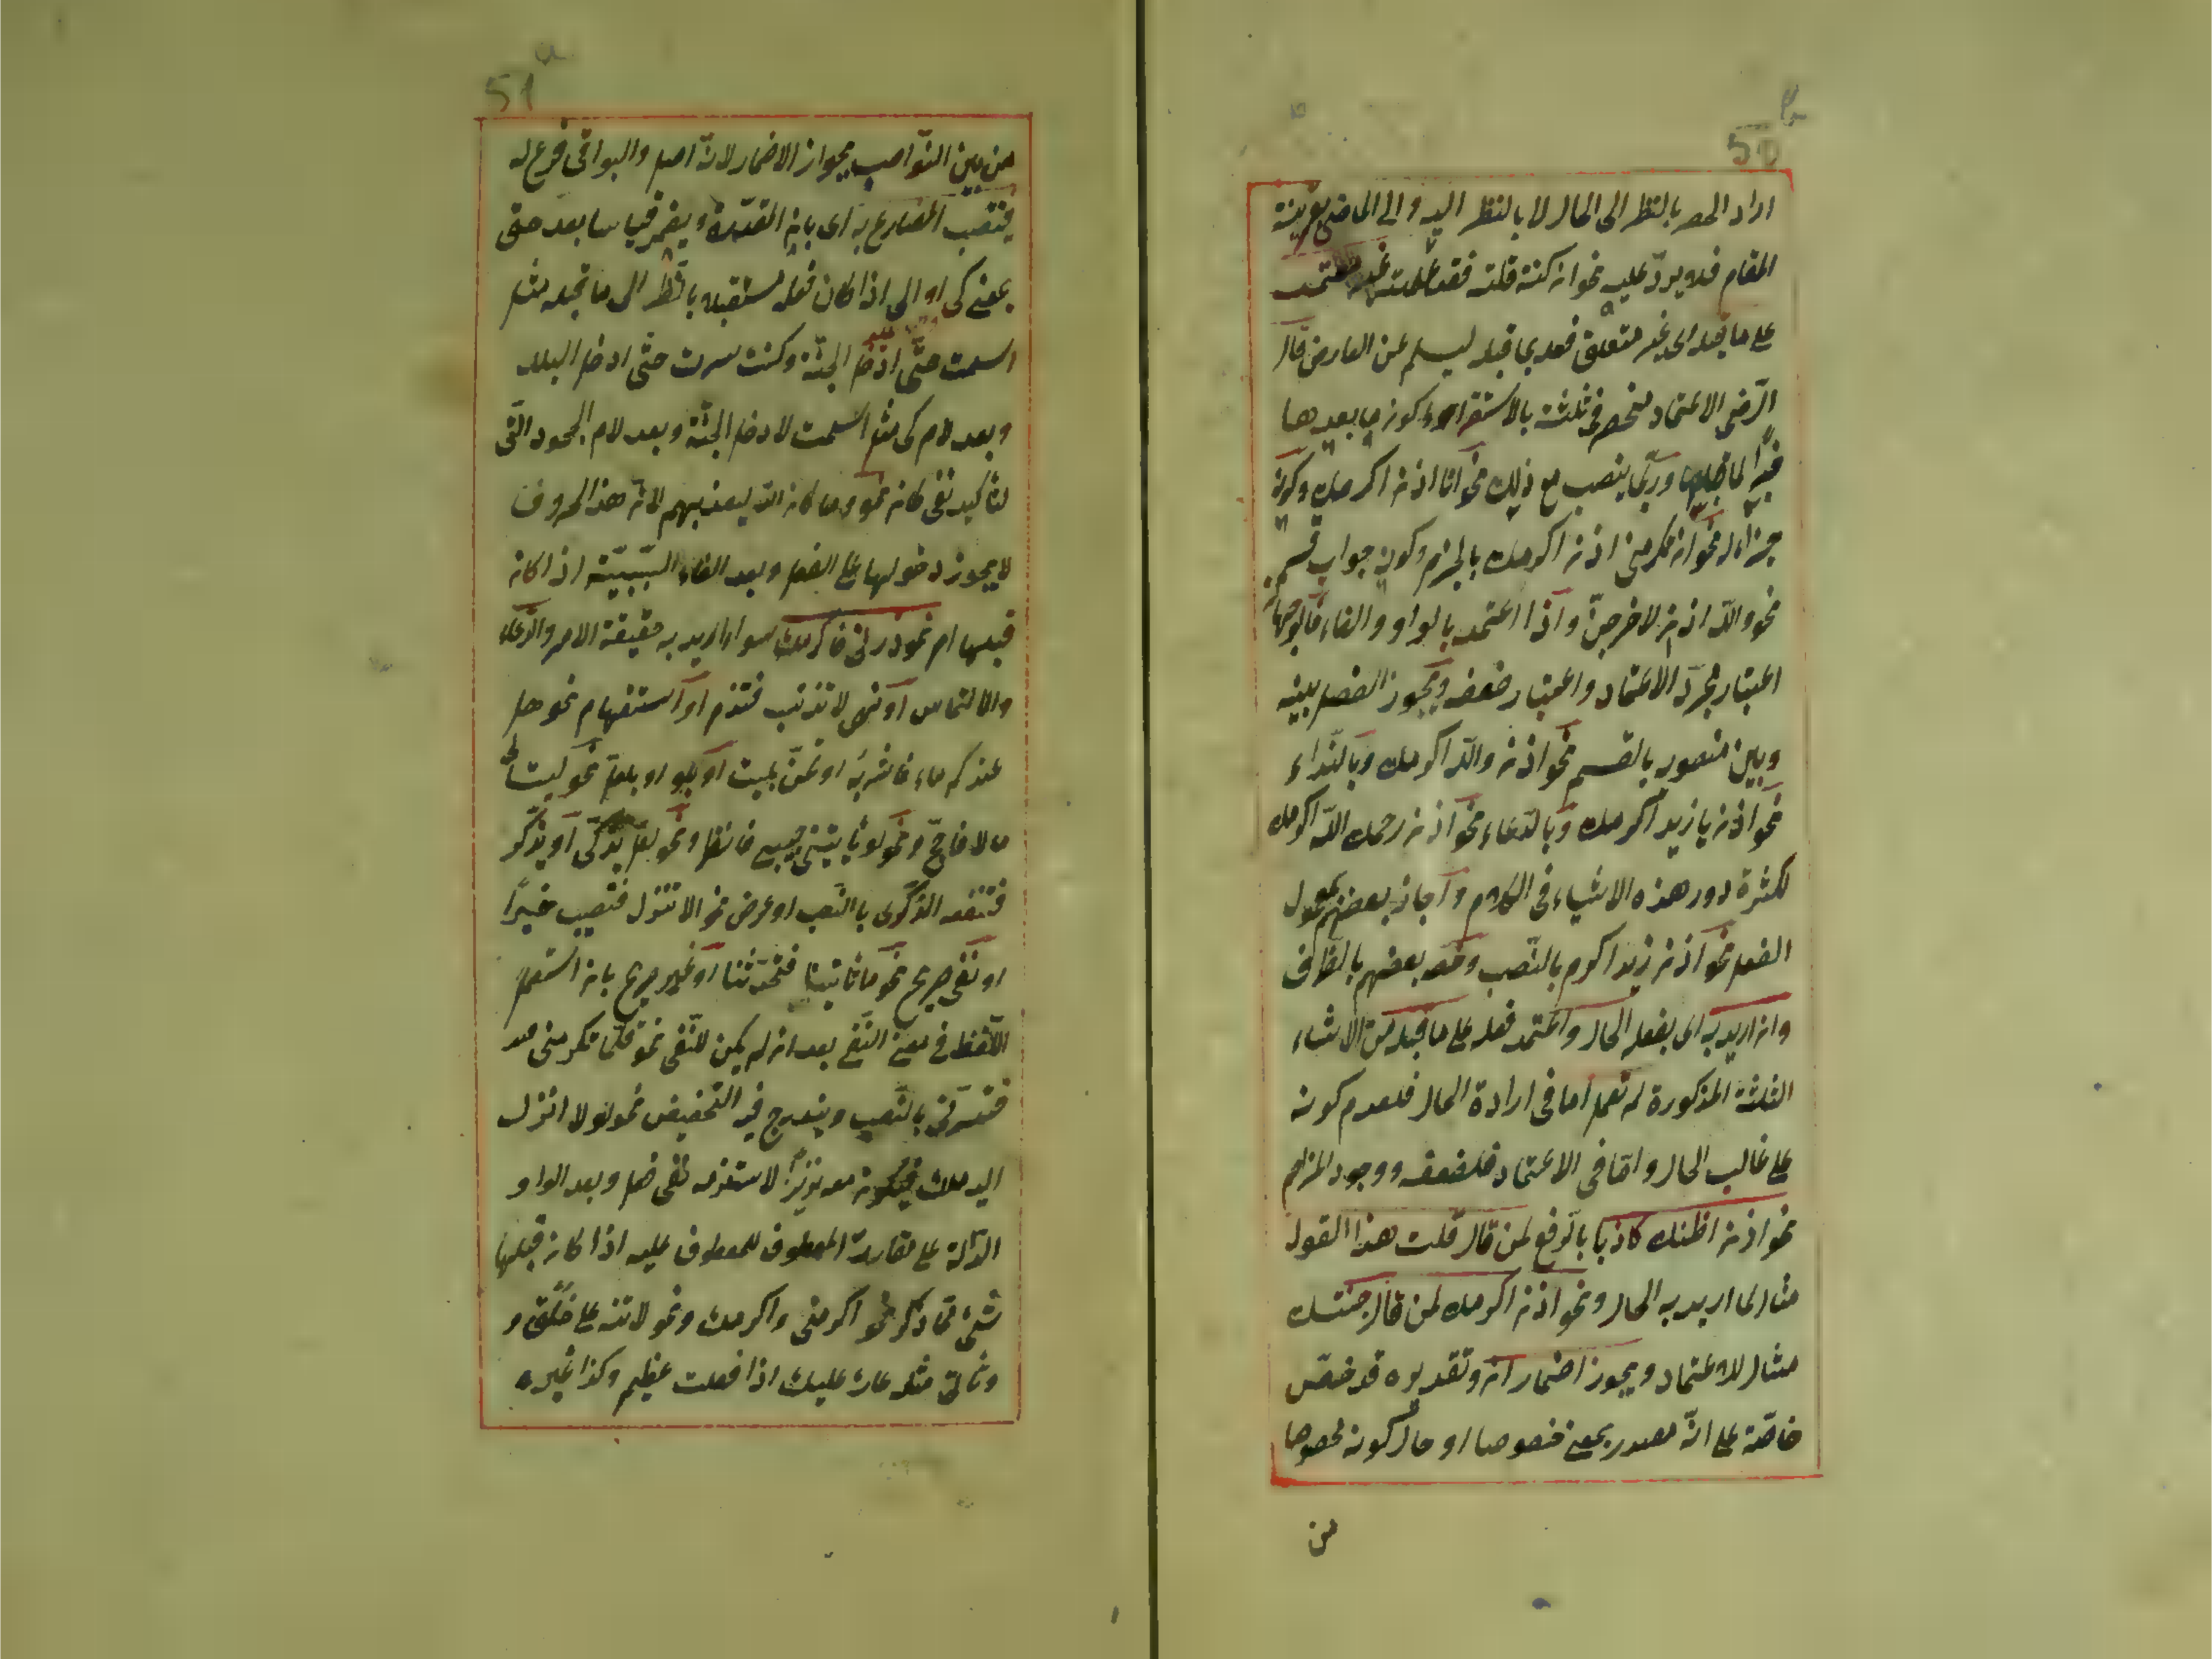 50 b
اراد الحصر بالنظر الى الحال لا بالنظر اليه والى الماضى بقرينة
المقام فلا يردّ عليه نحو ان كنت قلته فقد علمته غير معتمد
على ما قبله اى غير متعلق فعله بما قبله ليسلم عن العارض قال
الرّضى الاعتماد منحصر فى ثلثة بالاستقراء كون ما بعدها
خبرًا لما قبلها وربّما ينصب مع ذلك نحو انا اذن اكرمك وكونه
جزاء له نحو ان تكرمنى اذن اكرمك بالجزم وكونه جواب قسم
نحو واللّه اذن لاخرجنّ واذا اعتمد بالواو والفاء فالوجهان
اعتبار مجرّد الاعتماد واعتبار ضعفه ويجوز الفصل بينه
وبين منصوبه بالقسم نحو اذن واللّه اكرمك وبالنّداء
نحو اذن يا زيد اكرمك وبالدّعاء نحو اذن رحمك اللّه اكرمك
لكثرة دور هذه الاشياء فى الكلام واجاز بعضهم بمعمول
الفعل نحو اذن زيدا اكرم بالنّصب وخصّه بعضهم بالظرف
وان اريد به اى بفعله الحال واعتمد فعله على ما قبله من الاشياء
الثلثة المذكورة لم تعمل اما فى ارادة الحال فلعدم كونه
على غالب الحال وامّا فى الاعتماد فلضعفه ووجود المزاحم
نحو اذن اظنك كاذبا بالرفع لمن قال قلت هذا القول
مثال لما اريد به الحال ونحو اذن اكرمك لمن قال جئتك
مثال للاعتماد ويجوز اضمار ان وتقديره قد خصّ
خاصّة على انّه مصدر بمعنى خصوصا او حال كونه مخصوصا
من
51 a
من بين النّواصب بجواز الاضمار لانّه اصل والبواقى فرع له
فينتصب المضارع به اى بان المقدّرة ويضمر قياسا بعد حتى
بمعنى كى او الى اذا كان فعله مستقبلا بالنّظر الى ما قبله مثل
اسلمت حتّى ادخل الجنّة وكنت سرت حتّى ادخل البلد
وبعد لام كى مثل اسلمت لادخل الجنّة وبعد لام الجحود الّتى
لتأكيد نفى كان نحو وما كان اللّه ليعذبهم لانّ هذا الحروف
لا يجوز دخولها على الفعل وبعد الفاء السّببيّة اذا كان
قبلها امر نحو زرنى فاكرمك سواء اريد به حقيقة الامر والدّعاء
والالتماس او نهى لا تذنب فتذم او استفهام نحو هل
عندكم ماء فاشربه او تمنّ بليت او بلو او بلعلّ نحو ليت لى
مالا فاحجّ ونحو لو تأتينى فانظر ونحو لعلّه يزّكّى او يذّكّر
فتنفعه الذّكرى بالنّصب او عرض نحو الا تنزل فتصيب خيرًا
او نفى صريح نحو ما تأتينا فتحدّثنا او غير صريح بان استعمل
اللّفظ فى معنى النّفى بعد ان لم يكن للنّفى نحو قلّما تكرمنى
فتسرّنى بالنّصب ويندرج فيه التّحضيض نحو لولا انزل
اليه ملك فيكون معه نذيرًا لاستلزامه نفى فعل وبعد الواو
الدّالّة على مقارنة المعطوف للمعطوف عليه اذا كان قبلها
شئ ممّا ذكر نحو اكرمنى واكرمك ونحو لا تنه عن خلق و
وتأتى مثله عار عليك اذا فعلت عظيم وكذا غيره